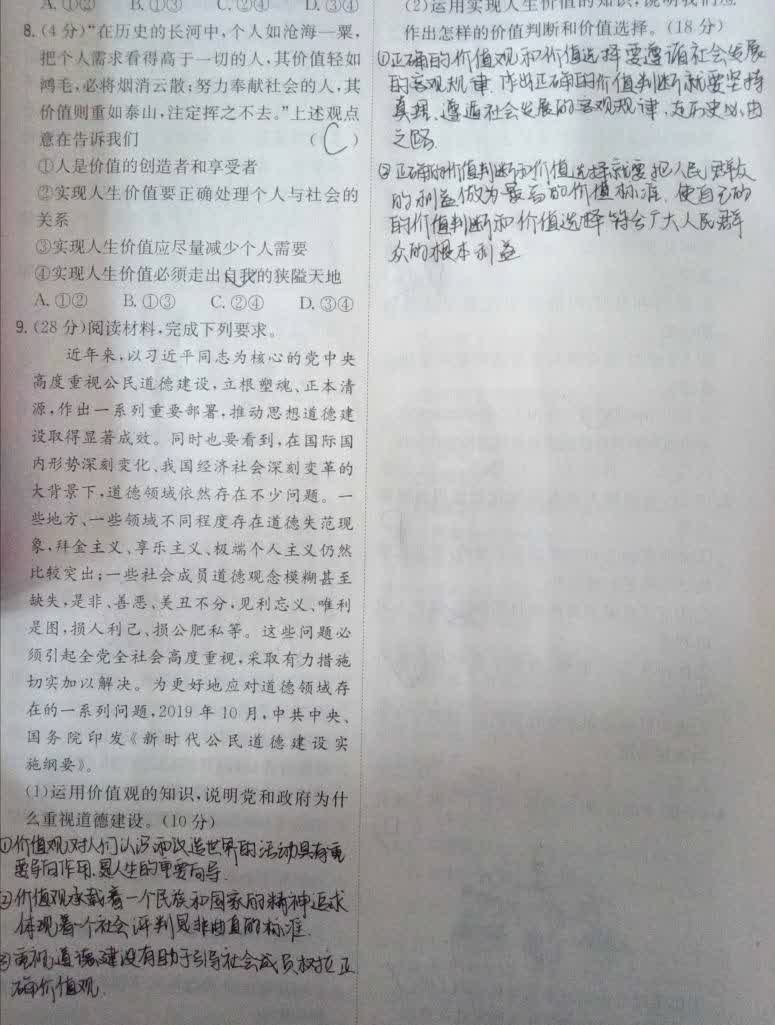 A.①② B.①③ C.②④ D.③④
8.(4 分)“在历史的长河中,个人如沧海一粟,
把个人需求看得高于一切的人,其价值轻如
鸿毛,必将烟消云散;努力奉献社会的人,其
价值则重如泰山,注定挥之不去。”上述观点
意在告诉我们 (C)
①人是价值的创造者和享受者
②实现人生价值要正确处理个人与社会的
关系
③实现人生价值应尽量减少个人需要
④实现人生价值必须走出自我的狭隘天地
A.①② B.①③ C.②④ D.③④
9.(28 分)阅读材料,完成下列要求。
近年来,以习近平同志为核心的党中央
高度重视公民道德建设,立根塑魂、正本清
源,作出一系列重要部署,推动思想道德建
设取得显著成效。同时也要看到,在国际国
内形势深刻变化、我国经济社会深刻变革的
大背景下,道德领域依然存在不少问题。一
些地方、一些领域不同程度存在道德失范现
象,拜金主义、享乐主义、极端个人主义仍然
比较突出;一些社会成员道德观念模糊甚至
缺失,是非、善恶、美丑不分,见利忘义、唯利
是图,损人利己、损公肥私等。这些问题必
须引起全党全社会高度重视,采取有力措施
切实加以解决。为更好地应对道德领域存
在的一系列问题,2019 年 10 月,中共中央、
国务院印发《新时代公民道德建设实
施纲要》。
(1)运用价值观的知识,说明党和政府为什
么重视道德建设。(10 分)
①价值观对人们认识和改造世界的活动具有重
要导向作用,是人生的重要向导.
②价值观承载着一个民族和国家的精神追求
体现着一个社会评判是非曲直的标准.
③重视道德建设有助于引导社会成员树立正
确价值观.
(2)运用实现人生价值的知识,说明我们应
作出怎样的价值判断和价值选择。(18 分)
①正确的价值观和价值选择要遵循社会发展
的客观规律 作出正确的价值判断就要坚持
真理、遵循社会发展的客观规律、走历史必由
之路.
②正确的价值判断和价值选择就要把人民群众
的利益做为最高的价值标准、使自己的
的价值判断和价值选择符合广大人民群
众的根本利益